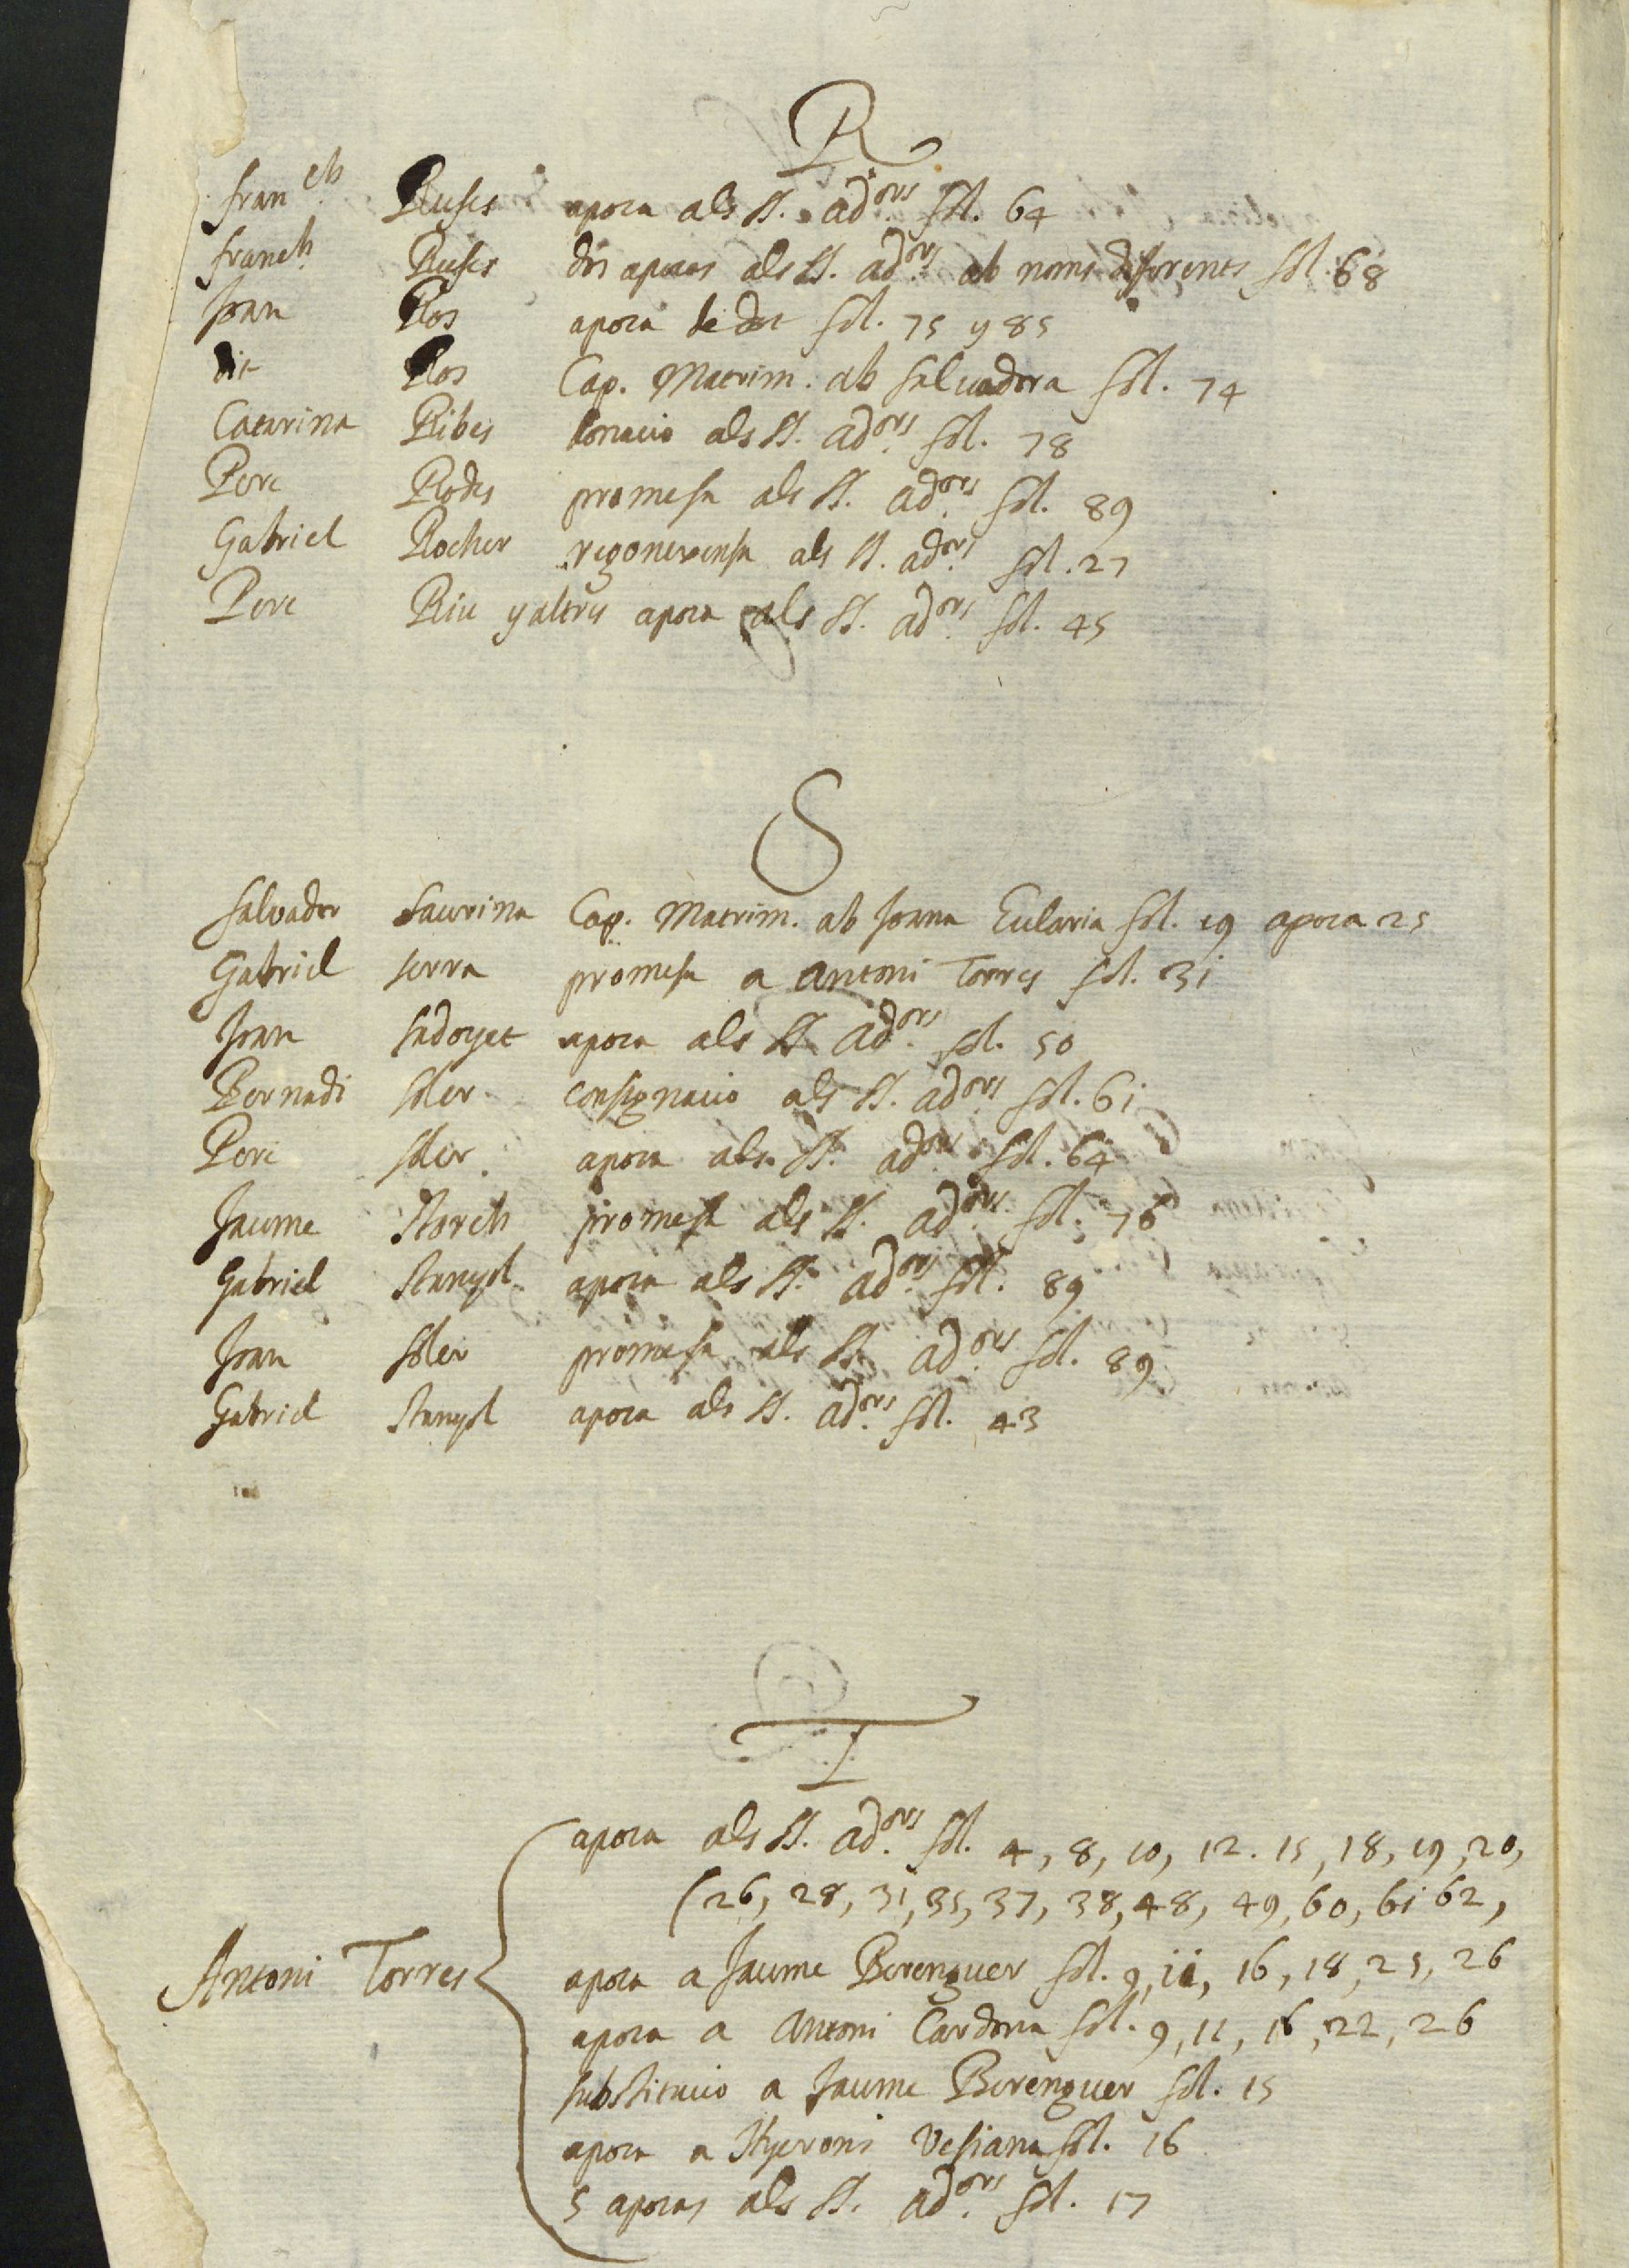 R
Fran.ch Ruses apoca als SS. ad.ors fol. 64
Franch. Ruses dos apocas als SS. ad.ors ab noms diferents fol. 68
Joan Ros apoca de dot fol. 75 y 85
dit Ros Cap. Matrim. ab Salvadora fol. 74
Catarina Ribes donacio als SS. ad.ors fol. 78
Pere Rodes promesa als SS. ad.ors fol. 89
Gabriel Rocher regonexensa als SS. ad.ors fol. 27
Pere Riu y altres apoca als SS. ad.ors fol. 45
S
Salvador Saurina Cap. Matrim. ab Joana Eularia fol. 19 apoca 25
Gabriel Serra promesa a Antoni Torres fol. 31
Joan Sadoyet apoca als SS. ad.ors fol. 50
Bernadi Soler consignacio als SS. ad.ors fol. 61
Pere Soler apoca als SS. ad.ors fol. 64
Jaume Storch promesa als SS. ad.ors fol. 76
Gabriel Stanyol apoca als SS. ad.ors fol. 89
Joan Soler promesa als SS. ad.ors fol. 89
Gabriel Stanyol apoca als SS. ad.ors fol. 43
T
apoca als SS. ad.ors fol. 4, 8, 10, 12. 15, 18, 19, 20,
(26, 28, 31, 35, 37, 38, 48, 49, 60, 61 62,
Antoni Torres apoca a Jaume Berenguer fol. 9, 11, 16, 18, 25, 26
apoca a Antoni Cardona fol. 9, 11, 16, 22, 26
substitucio a Jaume Berenguer fol. 15
apoca a Hyeroni Vesiana fol. 16
5 apocas als SS. ad.ors fol. 17